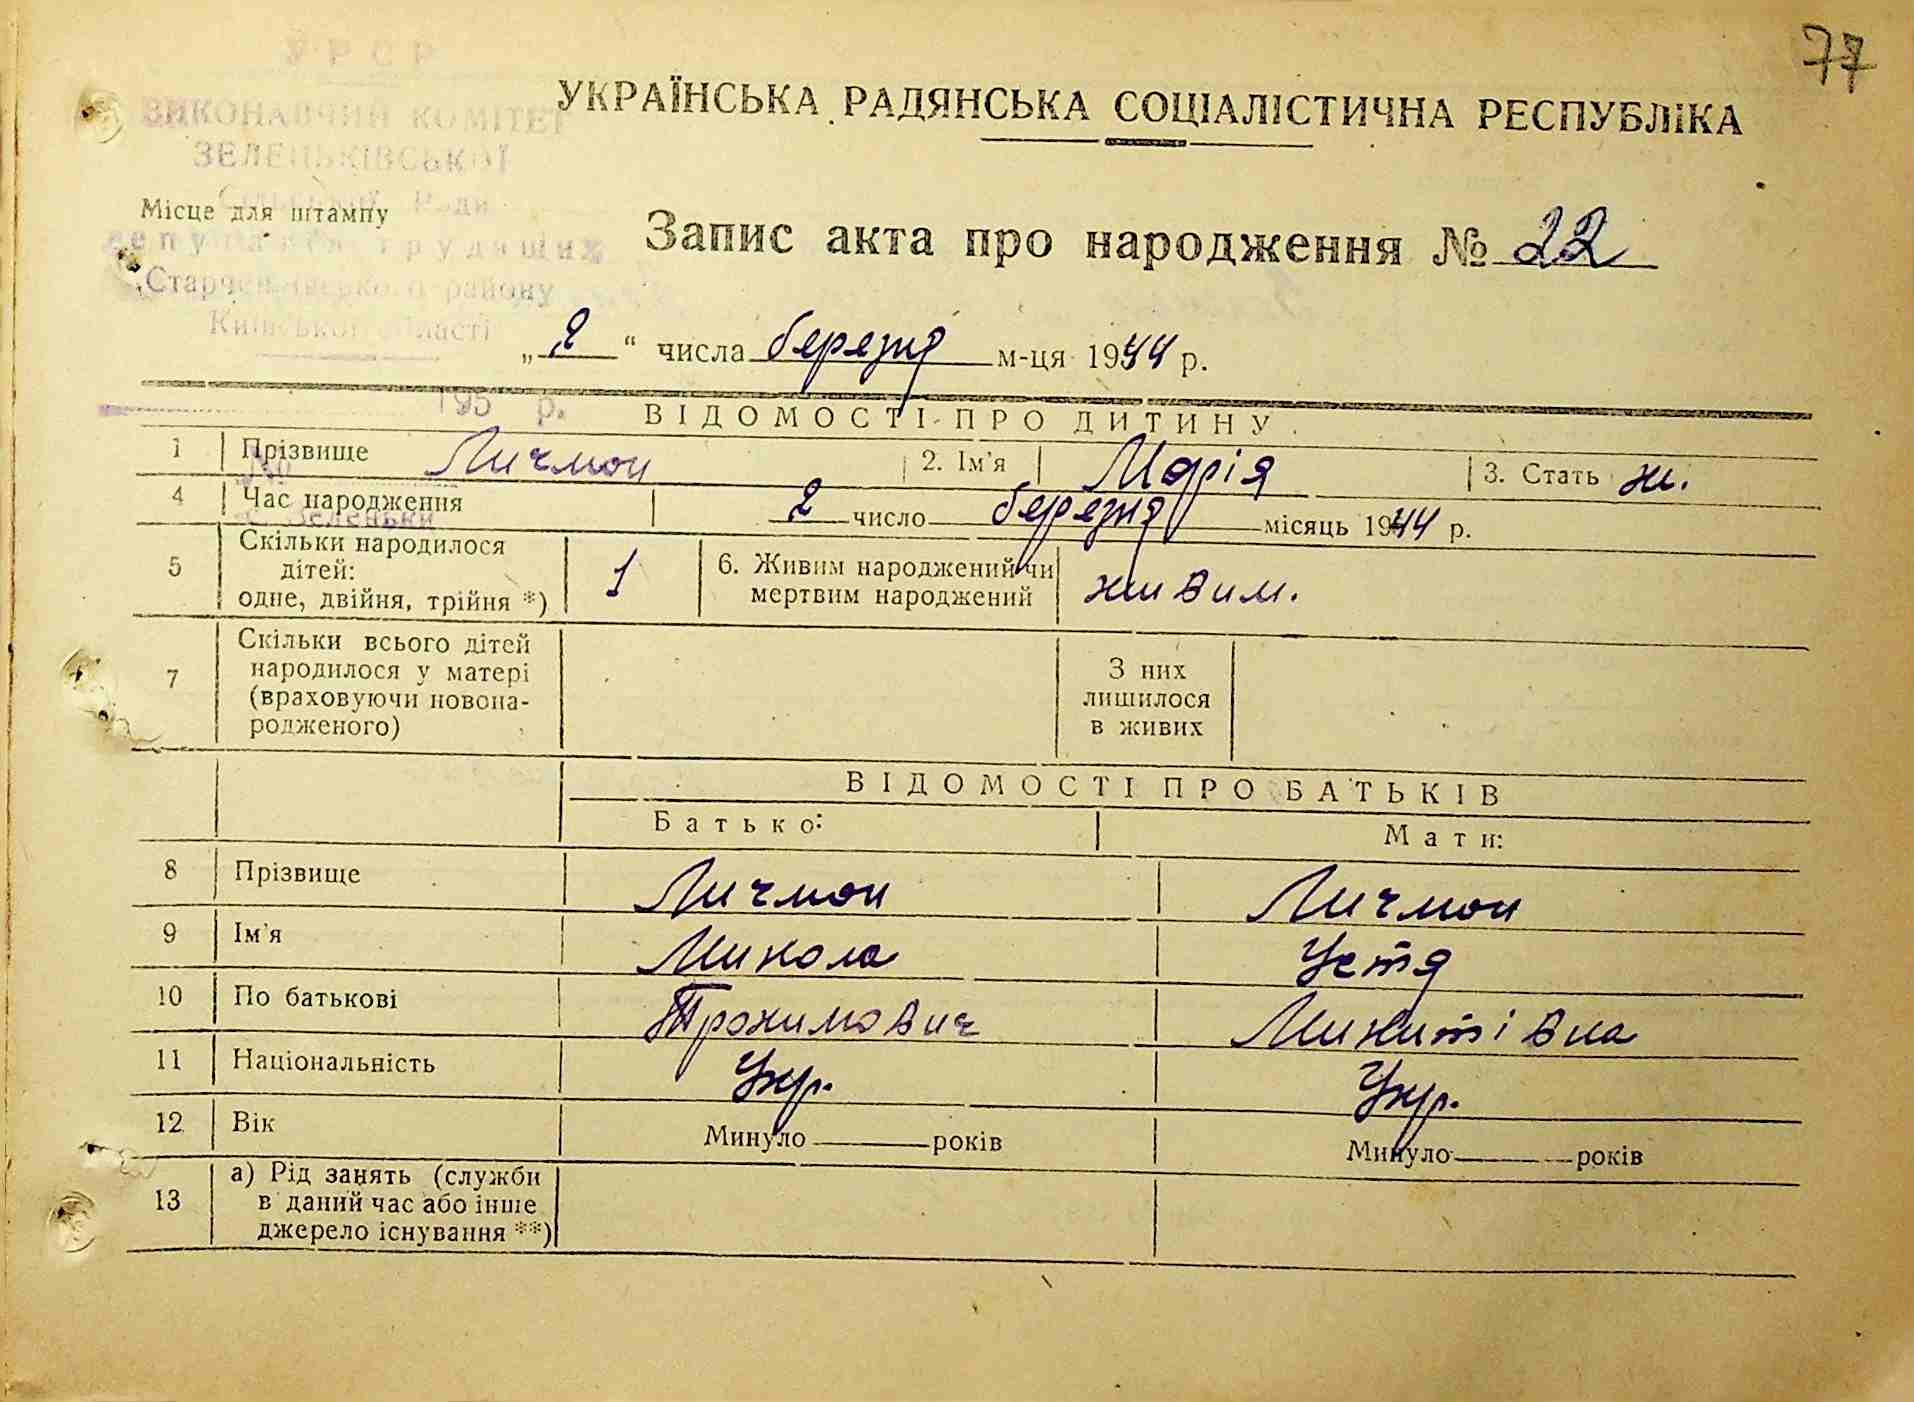 77
УРСР
ВИКОНАВЧИЙ КОМІТЕТ
ЗЕЛЕНЬКІВСЬКОЇ
Сільської Ради
депутатів трудящих
Київської області
195 р.
№
с. Зеленьки
УКРАЇНСЬКА РАДЯНСЬКА СОЦІАЛІСТИЧНА РЕСПУБЛІКА
Місце для штампу
Запис акта про народження № 22
„2“ числа березня м-ця 1944 р.
ВІДОМОСТІ ПРО ДИТИНУ
1 Прізвище Личман 2. Ім'я Марія 3. Стать ж.
4 Час народження 2 число березня місяць 1944 р.
5 Скільки народилося
дітей:
одне, двійня, трійня *) 1
6. Живим народжений чи
мертвим народжений живим.
7 Скільки всього дітей
народилося у матері
(враховуючи новона-
родженого)
З них
лишилося
в живих
ВІДОМОСТІ ПРО БАТЬКІВ
Батько: Мати:
8 Прізвище Личман Личман
9 Ім'я Микола Устя
10 По батькові Трохимович Микитівна
11 Національність Укр. Укр.
12 Вік Минуло років Минуло років
13 а) Рід занять (служби
в даний час або інше
джерело існування **)